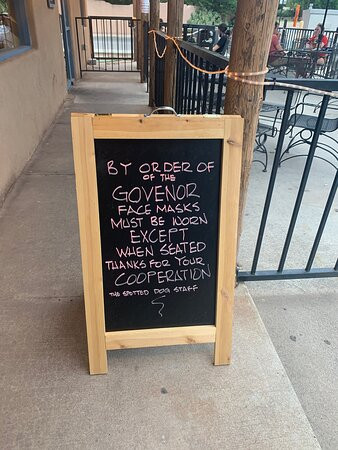 BY ORDER OF
OF THE
GOVENOR
FACE MASKS
MUST BE WORN
EXCEPT
WHEN SEATED
THANKS FOR YOUR
COOPERATION
THE SPOTTED DOG STAFF